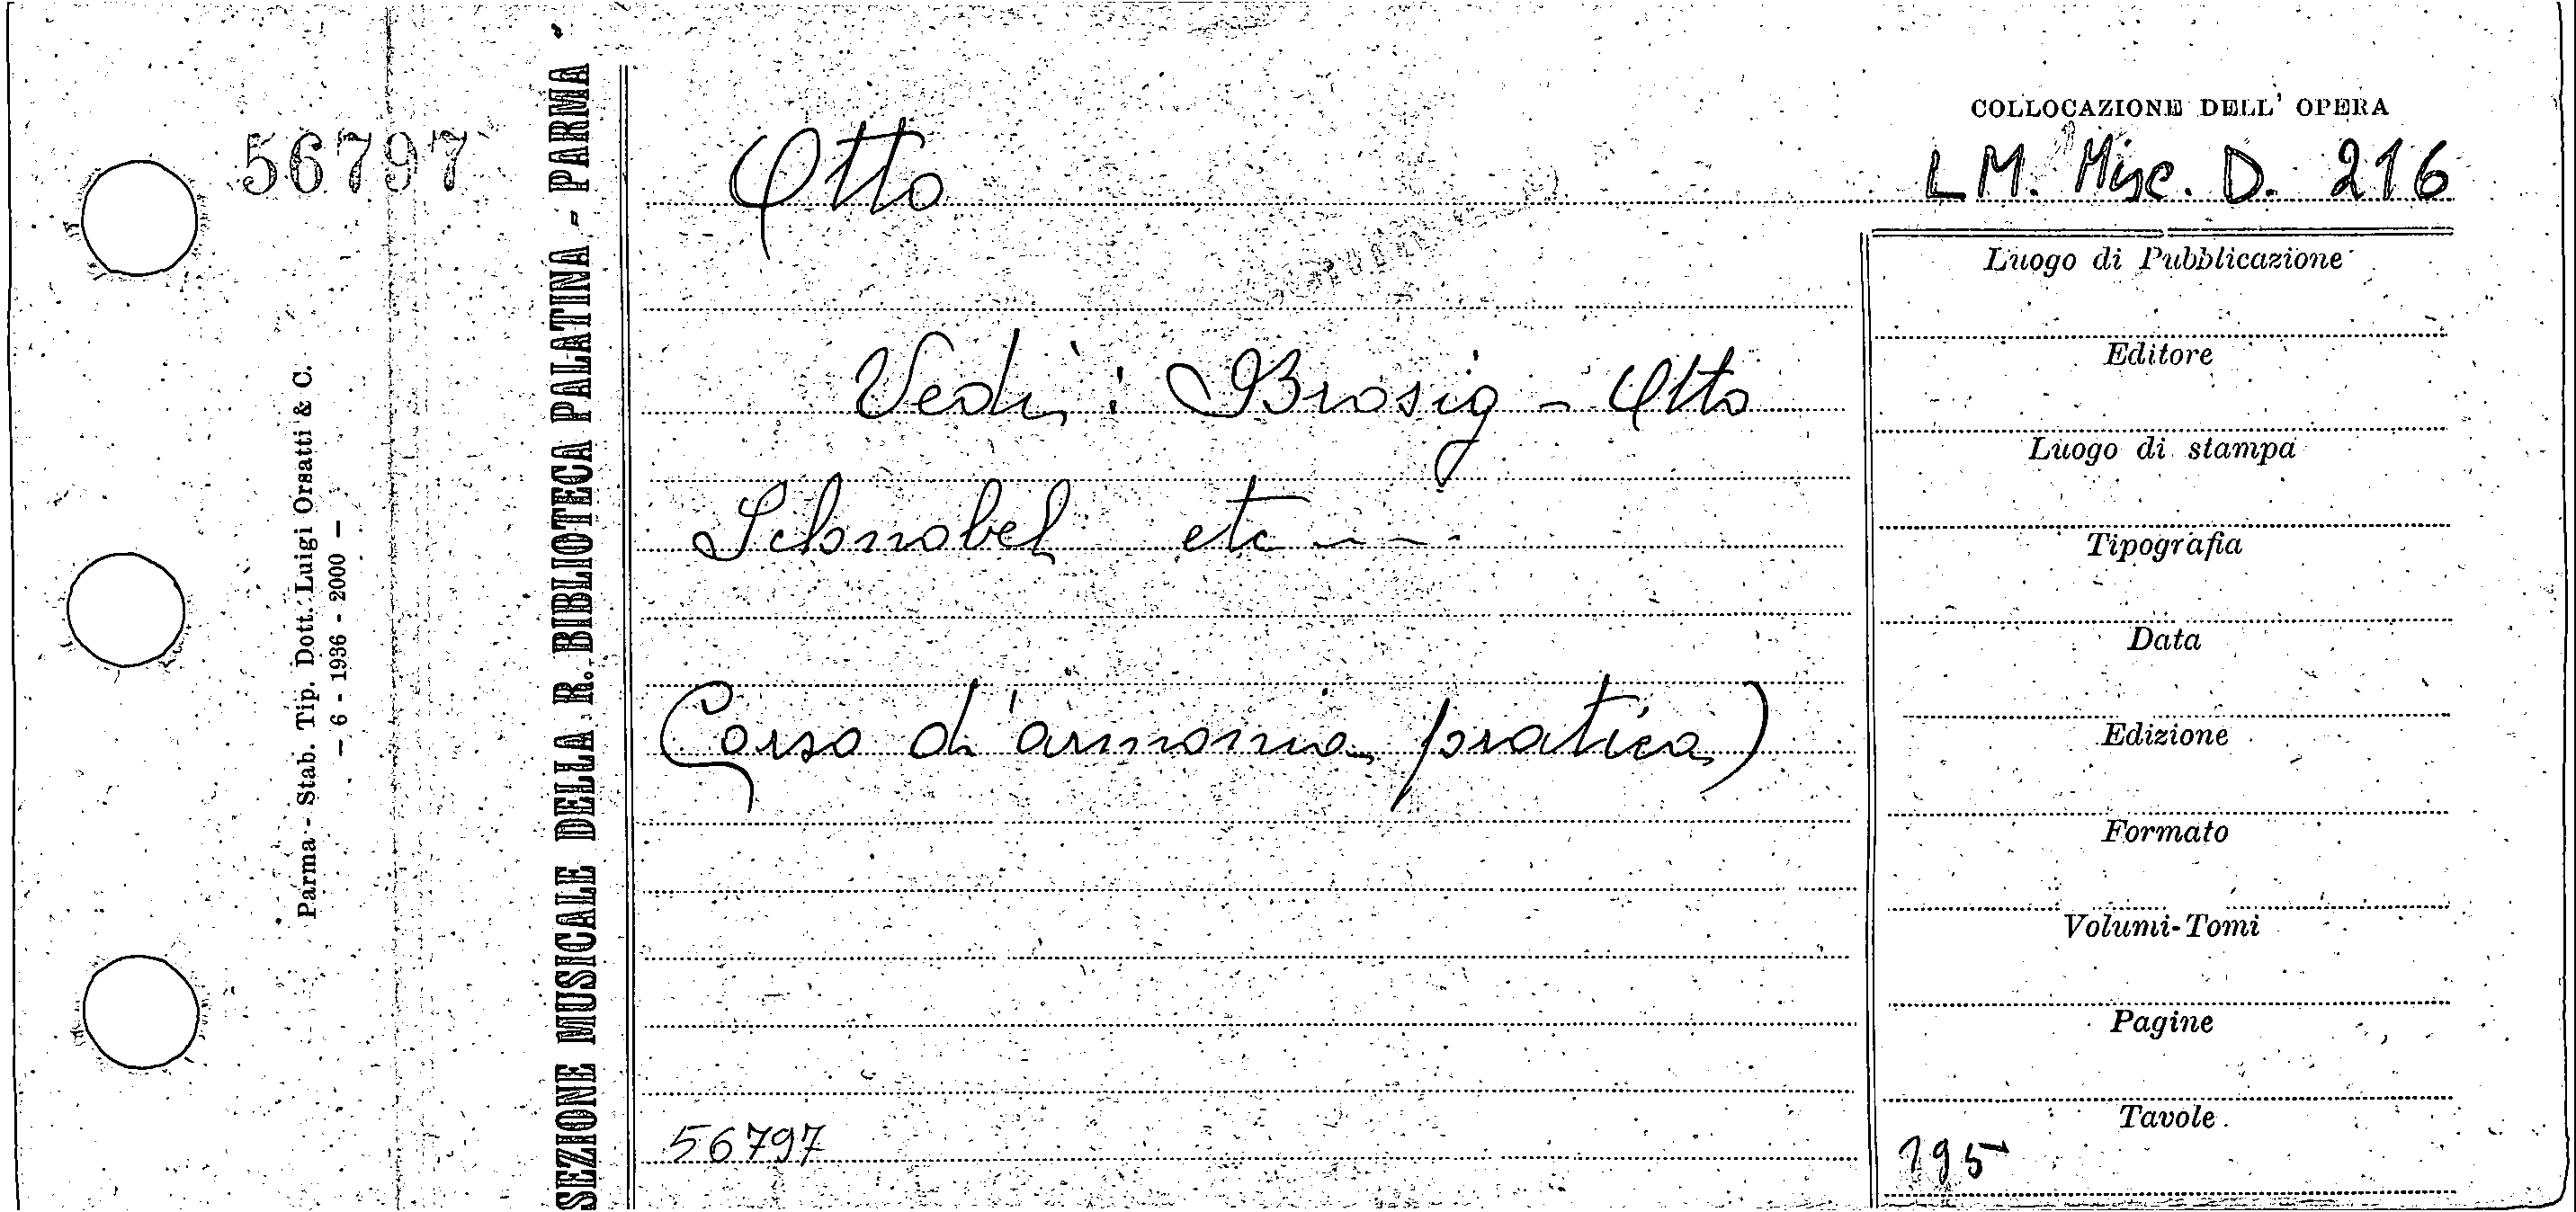 56797
Parma - Stab. Tip. Dott. Luigi Orsatti & C.
- 6 - 1936 - 2000 -
SEZIONE MUSICALE DELLA R. BIBLIOTECA PALATINA - PARMA
Otto
Vedi: Brosig - Otto
Schnabel etc ----
(Corso d'armonia pratica)
56797
COLLOCAZIONE DELL' OPERA
LM. Misc. D. 216
Luogo di Pubblicazione
Editore
Luogo di stampa
Tipografia
Data
Edizione
Formato
Volumi-Tomi
Pagine
Tavole
195